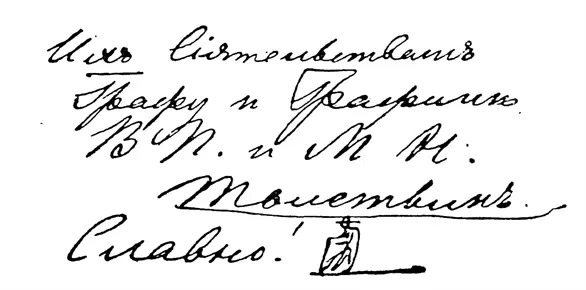 Ихъ Сіятельствамъ
Графу и Графинѣ
В П. и М Н.
Толстымъ
Славно!